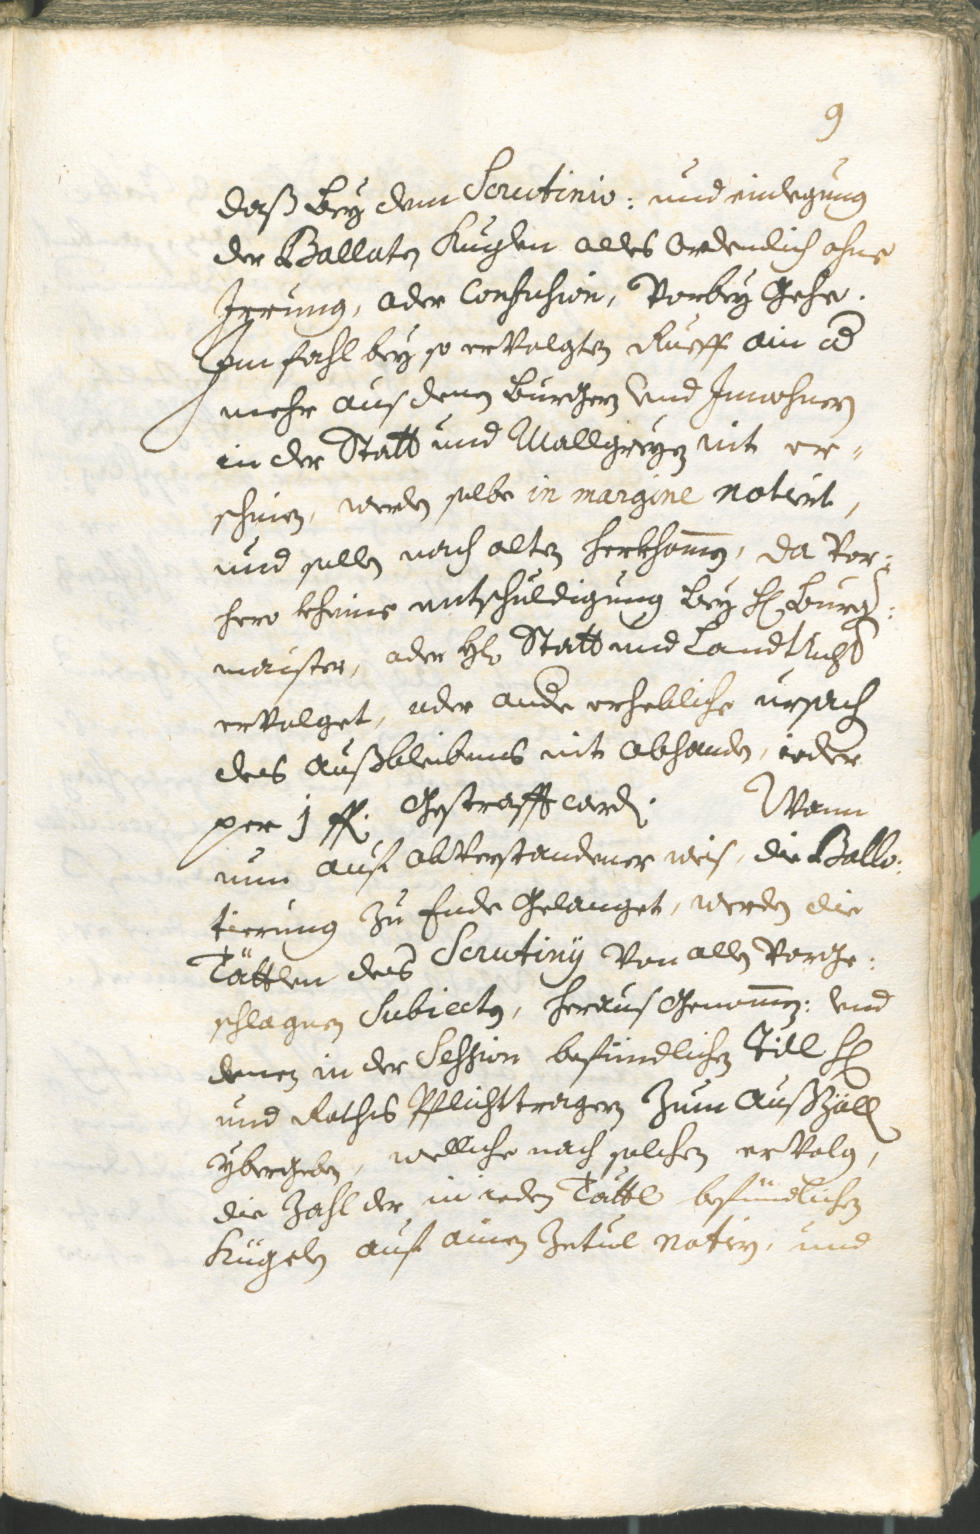 9
daß Bey dem Scrutinio: und einlegung
der Ballaten Kuglen alles Ordendlich ohne
Irrung, oder Confusion, Vorbey Gehe.
Im fahl bey so ervolgten Rueff ain od
mehr aus denen Burgern und Innwohnern
in der Statt und Mallgreyen nit er-
scheinen, werden selbe in margine notiert,
und sollen nach alten herkhomen, da Vor:
hero kheine entschuldigung Bey H Burg:
maister, oder Hl Statt und Landt
ervolget, oder ande erhebliche ursach
des Außbleibens nit abhanden, ieder
per 1 fl: Gestrafft werd. Wann
nun auf obverstandener weis, die Ballo:
tierung zu Ende Gelanget, werden die
Tättlen des Scrutinÿ von allen Vorge:
schlagnen Subiecten, heraus Genomen: und
denen in der Session befündlichen Titl H
und Raths Pflichttragern zum Außzöll
ybergeben, welliche nach solchen ervolg,
die Zahl der in ieden Tättl befündlichen
Kügeln auf ainen Zetul notiern, und